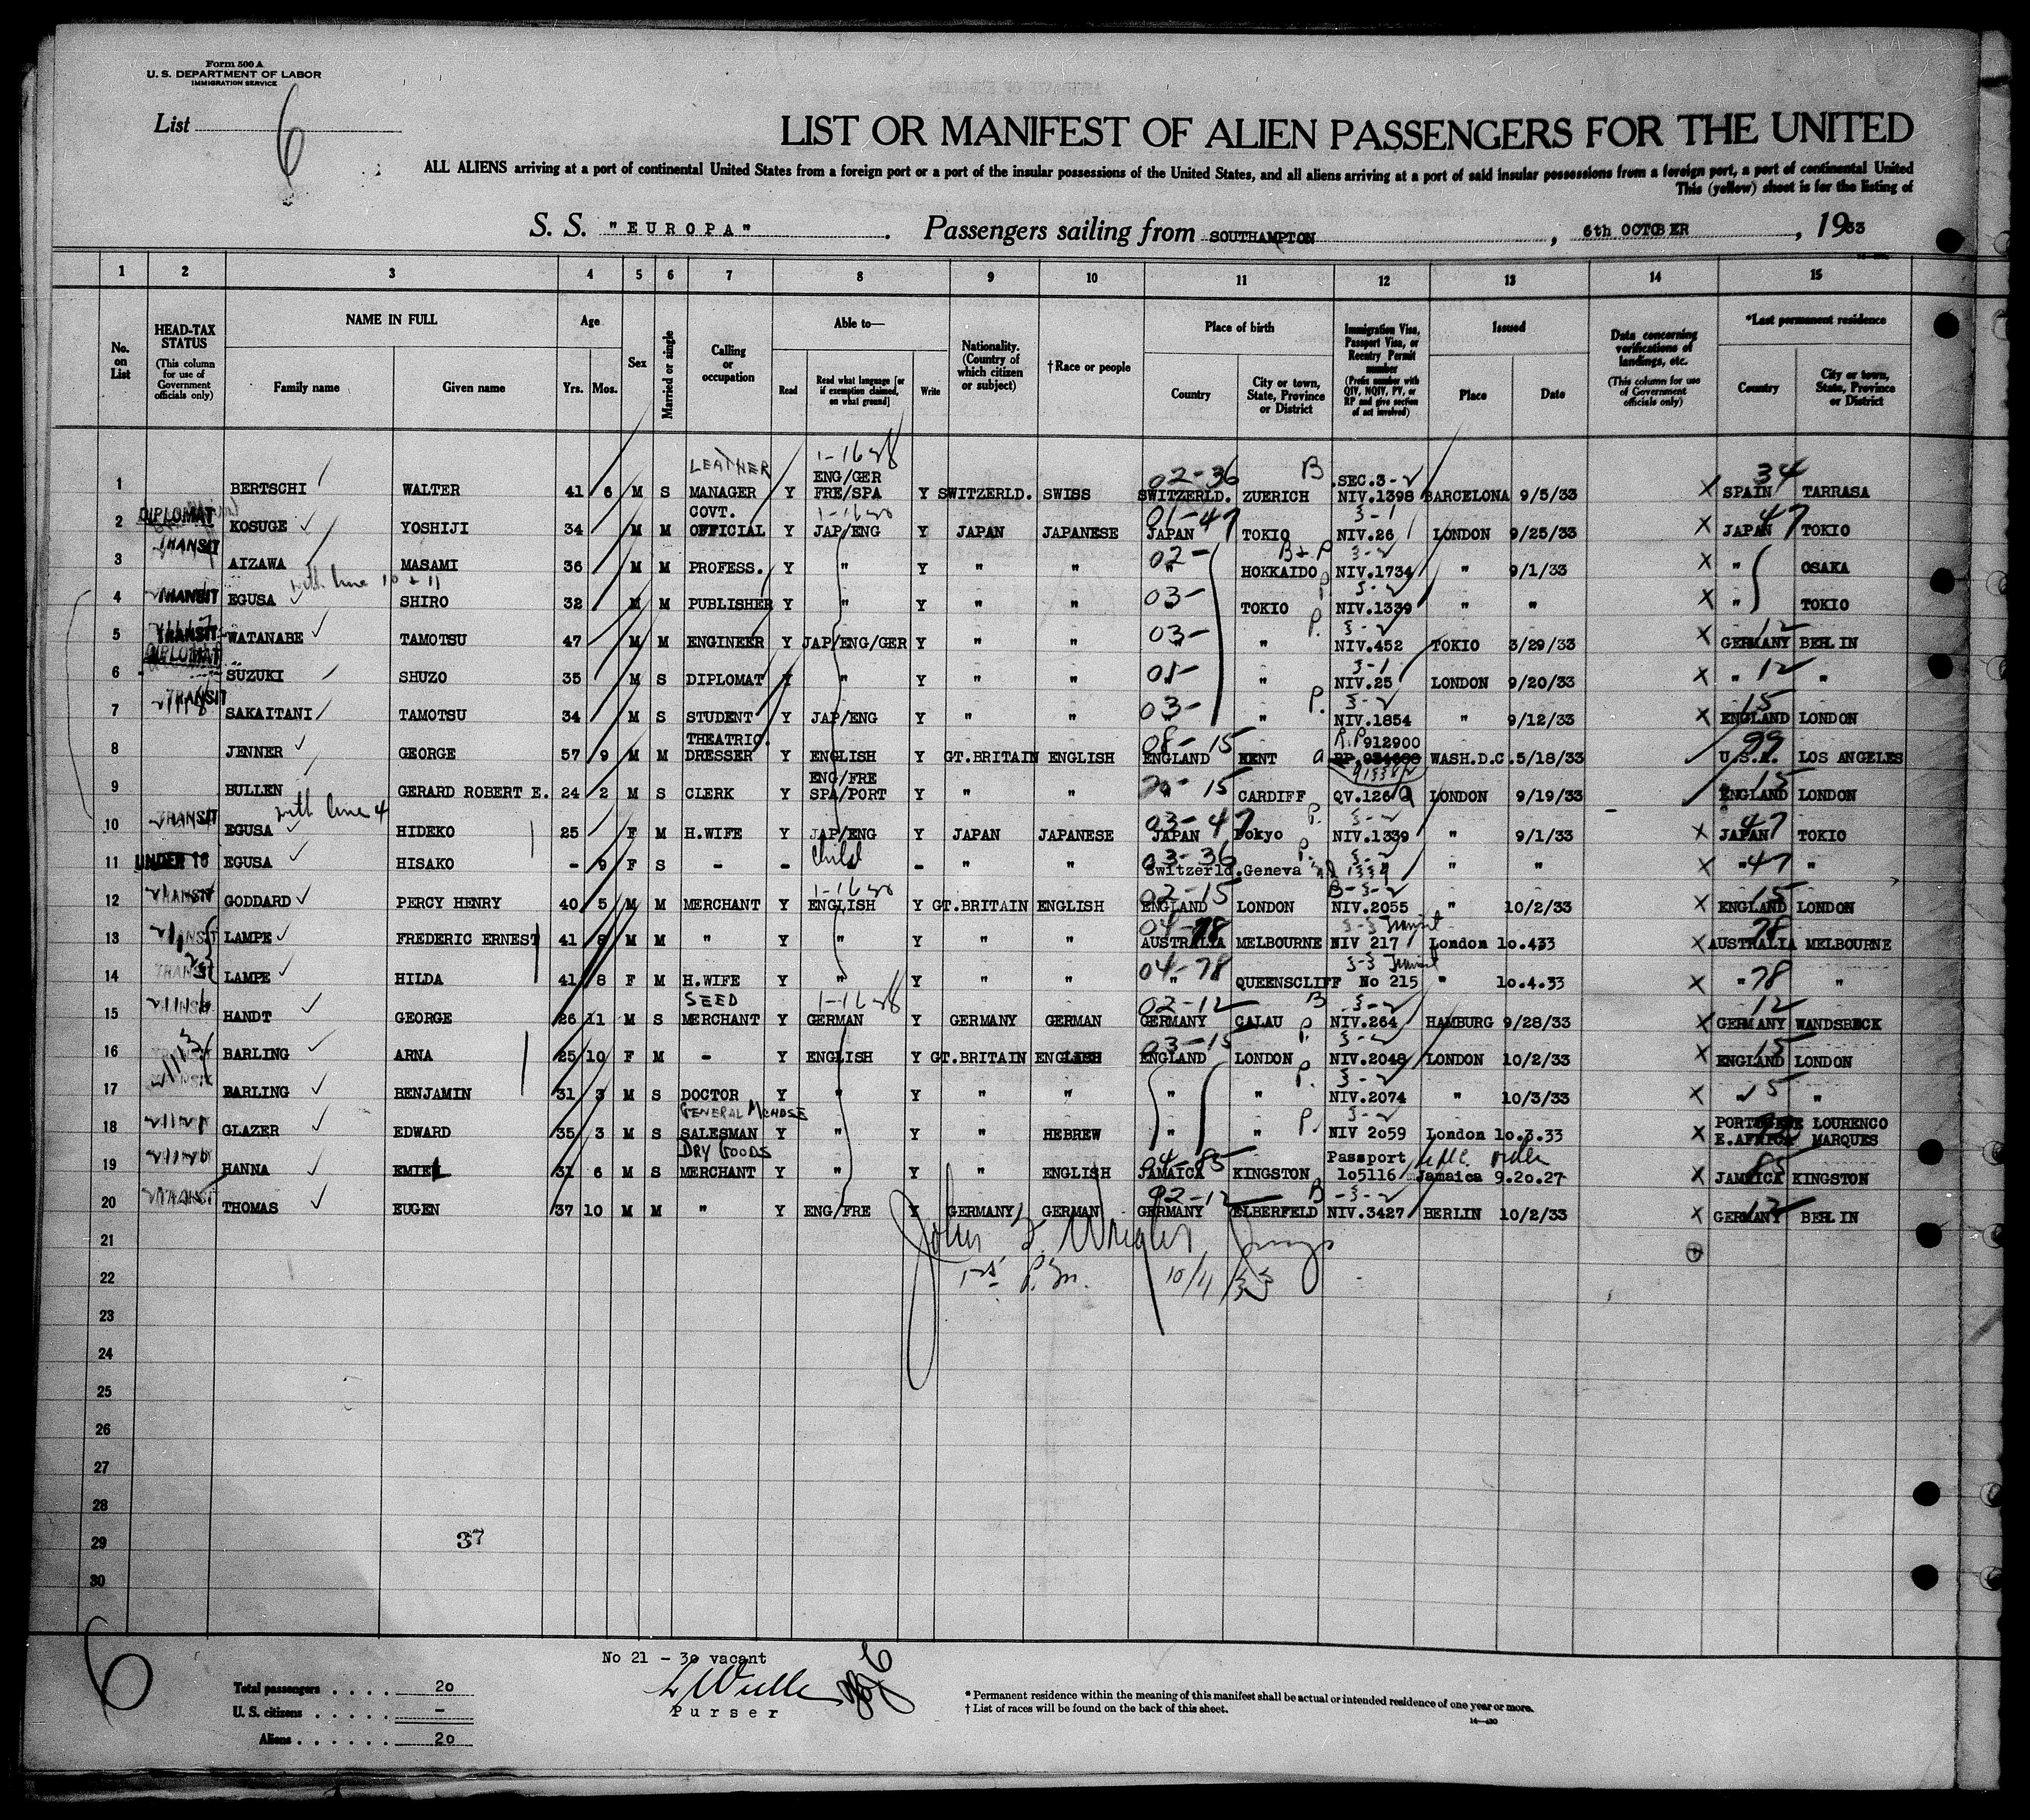 Form 500 A
U. S. DEPARTMENT OF LABOR
IMMIGRATION SERVICE
List 6
LIST OR MANIFEST OF ALIEN PASSENGERS FOR THE UNITED
ALL ALIENS arriving at a port of continental United States from a foreign port or a port of the insular possessions of the United States, and all aliens arriving at a port of said insular possessions from a foreign port, a port of continental United
This (yellow) sheet is for the listing of
S. S. "EUROPA". Passengers sailing from SOUTHAMPTON, 6th OCTOBER, 1933
1 2 3 4 5 6 7 8 9 10 11 12 13 14 15
No. on List
HEAD-TAX STATUS (This column for use of Government officials only)
NAME IN FULL
Family name
Given name
Age
Yrs. Mos.
Sex
Married or single
Calling or occupation
Able to—
Read
Read what language [or if exemption claimed, on what ground]
Write
Nationality. (Country of which citizen or subject)
†Race or people
Place of birth
Country
City or town, State, Province or District
Immigration Visa, Passport Visa, or Reentry Permit number (Prefix number with QIV, NQIV, PV, or RP and give section of act involved)
Issued
Place
Date
Data concerning verifications of landings, etc. (This column for use of Government officials only)
*Last permanent residence
Country
City or town, State, Province or District
LEATHER 1-1628 02-36 B 34
ENG/GER SEC.3-2
1 BERTSCHI WALTER 41 6 M S MANAGER Y FRE/SPA Y SWITZERLD. SWISS SWITZERLD. ZUERICH NIV.1398 BARCELONA 9/5/33 X SPAIN TARRASA
DIPLOMAT GOVT. 01-47 3-1 47
2 KOSUGE YOSHIJI 34 M M OFFICIAL Y JAP/ENG Y JAPAN JAPANESE JAPAN TOKIO NIV.26 LONDON 9/25/33 X JAPAN TOKIO
TRANSIT 02- B+P 3-2
3 AIZAWA MASAMI 36 M M PROFESS. Y " Y " " " HOKKAIDO NIV.1734 " 9/1/33 X " OSAKA
with line 10 + 11
TRANSIT 03- P. 3-2
4 EGUSA SHIRO 32 M M PUBLISHER Y " Y " " TOKIO NIV.1339 " " X " TOKIO
TRANSIT 03- P. 3-2 12
5 WATANABE TAMOTSU 47 M M ENGINEER Y JAP/ENG/GER Y " " " NIV.452 TOKIO 3/29/33 X GERMANY BERLIN
DIPLOMAT 01- 3-1 12
6 SUZUKI SHUZO 35 M S DIPLOMAT Y " Y " " " NIV.25 LONDON 9/20/33 X " "
TRANSIT 03- P. 3-2 15
7 SAKAITANI TAMOTSU 34 M S STUDENT Y JAP/ENG Y " " " NIV.1854 " 9/12/33 X ENGLAND LONDON
THEATRIC. 08-15 R.P912900 99
8 JENNER GEORGE 57 9 M M DRESSER Y ENGLISH Y GT.BRITAIN ENGLISH ENGLAND KENT WASH.D.C. 5/18/33 U.S.A. LOS ANGELES
ENG/FRE 15 15
9 BULLEN GERARD ROBERT E. 24 2 M S CLERK Y SPA/PORT Y " " CARDIFF QV.126 LONDON 9/19/33 ENGLAND LONDON
with line 4
TRANSIT 03-47 P. 3-2 47
10 EGUSA HIDEKO 25 F M H.WIFE Y JAP/ENG Y JAPAN JAPANESE JAPAN Tokyo NIV.1339 " 9/1/33 X JAPAN TOKIO
UNDER 16 child 03-36 P. 3-2
11 EGUSA HISAKO - 9 F S - - - " " Switzerld. Geneva 1339 " " X " 47 "
TRANSIT 02-15 B-3-2 15
12 GODDARD PERCY HENRY 40 5 M M MERCHANT Y ENGLISH Y GT.BRITAIN ENGLISH ENGLAND LONDON NIV.2055 " 10/2/33 X ENGLAND LONDON
TRANSIT 04-78 3-3 Transit 78
13 LAMPE FREDERIC ERNEST 41 8 M M " Y " Y " " AUSTRALIA MELBOURNE NIV 217 London 10.433 X AUSTRALIA MELBOURNE
TRANSIT 04-78 3-3 Transit
14 LAMPE HILDA 41 8 F M H.WIFE Y " Y " " " QUEENSCLIFF No 215 " 10.4.33 X " 78 "
SEED 1-1628 02-12 B 3-2 12
15 HANDT GEORGE 26 11 M S MERCHANT Y GERMAN Y GERMANY GERMAN GERMANY CALAU NIV.264 HAMBURG 9/28/33 X GERMANY WANDSBECK
03-15 P. 3-2 15
16 BARLING ARNA 25 10 F M - Y ENGLISH Y GT.BRITAIN ENGLISH ENGLAND LONDON NIV.2048 LONDON 10/2/33 X ENGLAND LONDON
P. 3-2
17 BARLING BENJAMIN 31 3 M S DOCTOR Y " Y " " " " NIV.2074 " 10/3/33 X " 15 "
GENERAL MCHDSE P. 3-2 PORTUGESE LOURENCO
18 GLAZER EDWARD 35 3 M S SALESMAN Y " Y " HEBREW " " NIV 2059 London 10.3.33 X E.AFRICA MARQUES
DRY GOODS 04-85 Passport 85
19 HANNA EMIEL 31 6 M S MERCHANT Y " Y " ENGLISH JAMAICA KINGSTON 105116 Jamaica 9.20.27 X JAMAICA KINGSTON
TRANSIT 02-12 B-3-2 12
20 THOMAS EUGEN 37 10 M M " Y ENG/FRE Y GERMANY GERMAN GERMANY ELBERFELD NIV.3427 BERLIN 10/2/33 X GERMANY BERLIN
21
22 10/11/33
23
24
25
26
27
28
29 37
30
6
No 21 - 30 vacant
Purser
Total passengers . . . . 20
U. S. citizens . . . . . -
Aliens . . . . . . 20
* Permanent residence within the meaning of this manifest shall be actual or intended residence of one year or more.
† List of races will be found on the back of this sheet.
14—430